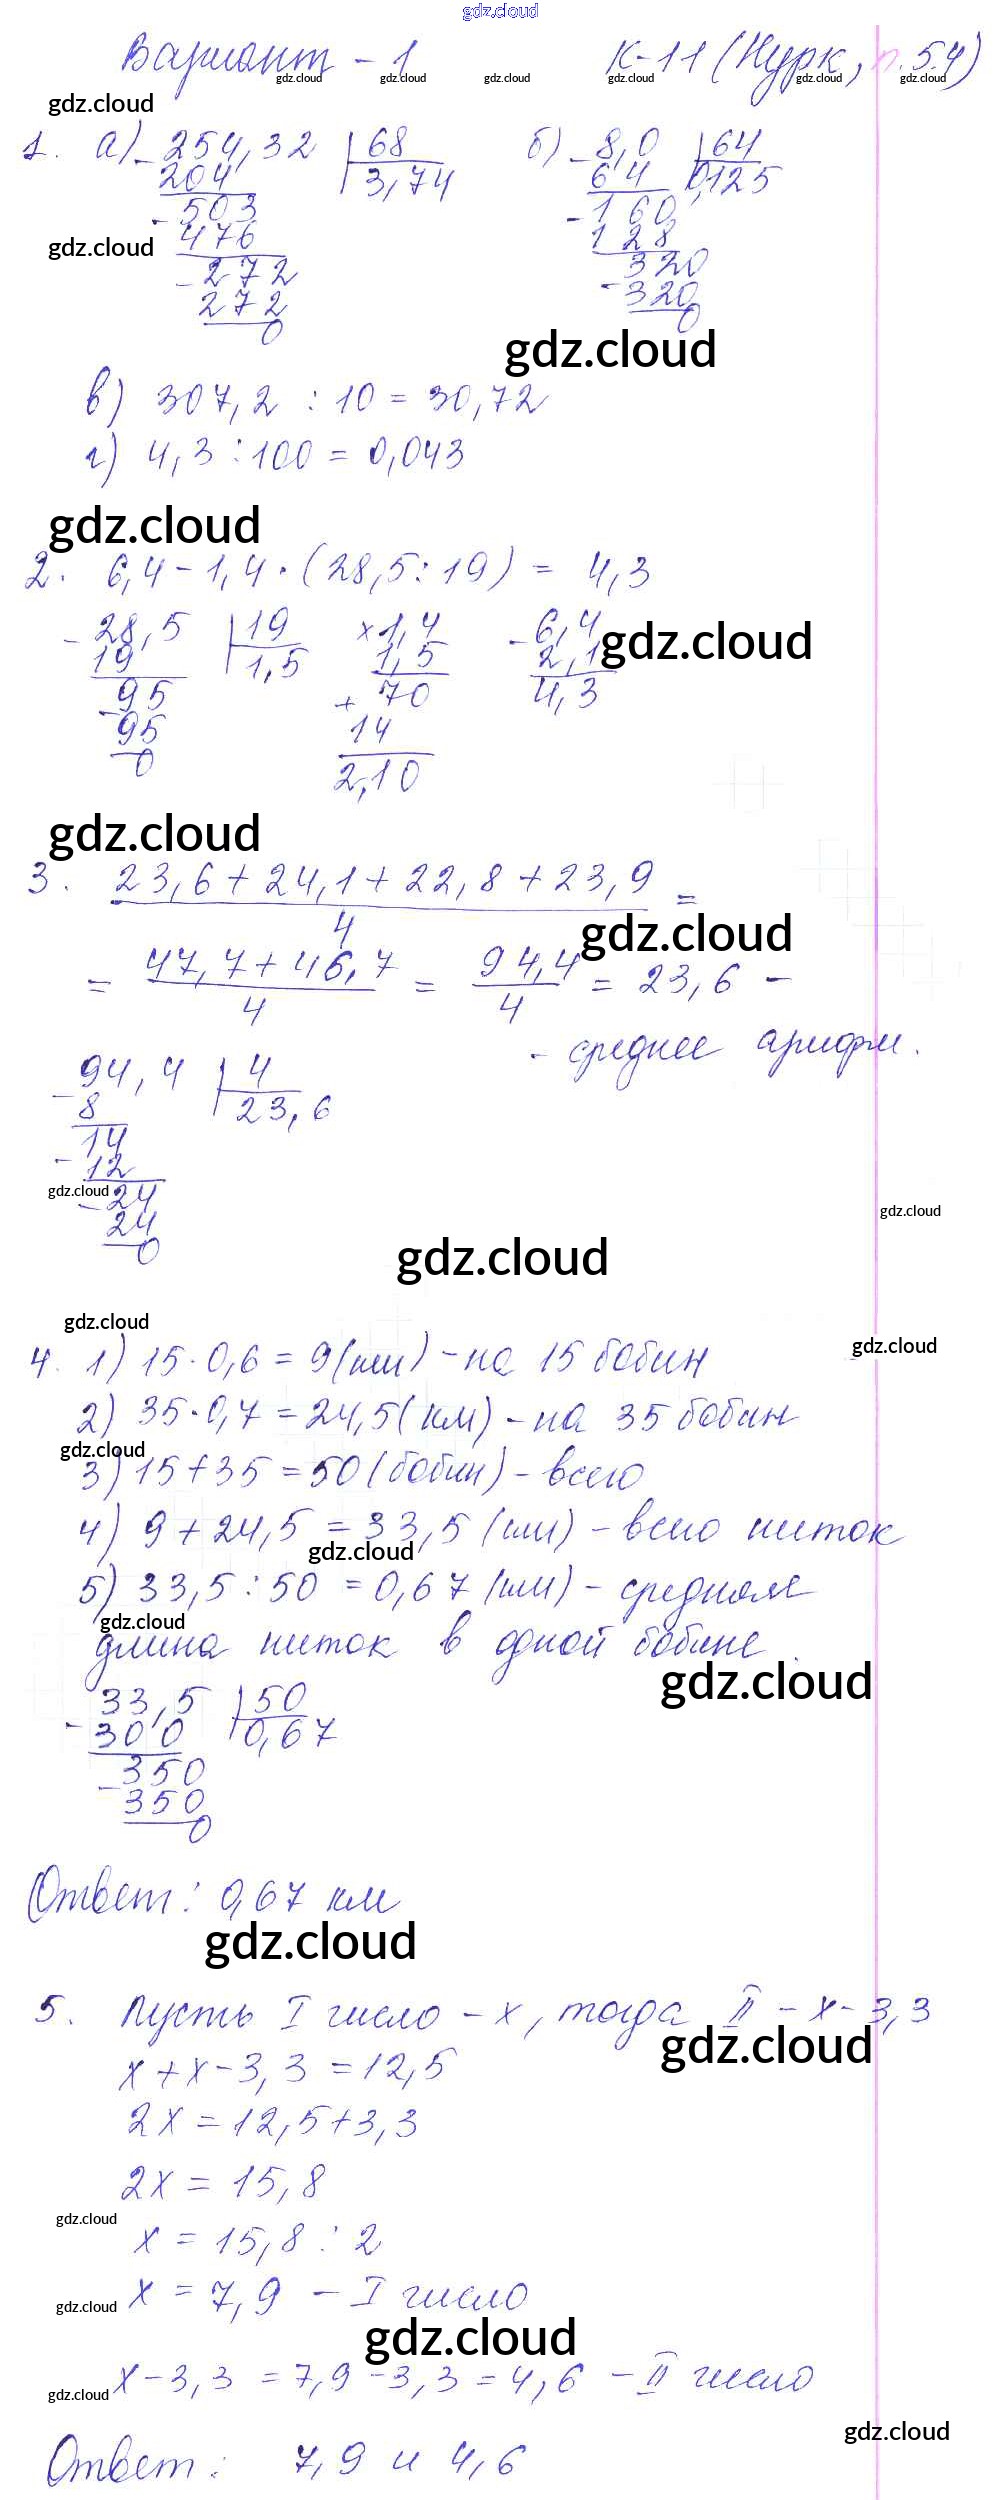 gdz.cloud
Вариант - 1 К-11 (Нурк, п. 5.4)
gdz.cloud gdz.cloud gdz.cloud gdz.cloud gdz.cloud gdz.cloud gdz.cloud
gdz.cloud
1. а) - 254,32 | 68 б) - 8,0 | 64
204 3,74 64 0,125
- 503 - 160
476 128
gdz.cloud
- 272 320
272 - 320
0 0
gdz.cloud
в) 307,2 : 10 = 30,72
г) 4,3 : 100 = 0,043
gdz.cloud
2. 6,4 - 1,4 · (28,5 : 19) = 4,3
- 28,5 | 19 × 1,4 - 6,4
gdz.cloud
19 1,5 1,5 2,1
- 95 + 70 4,3
95 14
0 2,10
gdz.cloud
3. 23,6 + 24,1 + 22,8 + 23,9 =
4
gdz.cloud
= 47,7 + 46,7 = 94,4 = 23,6 -
4 4
- среднее арифм.
- 94,4 | 4
8 23,6
14
- 12
gdz.cloud
- 24
gdz.cloud
24
0
gdz.cloud
gdz.cloud
gdz.cloud
4. 1) 15 · 0,6 = 9 (км) - на 15 бобин
2) 35 · 0,7 = 24,5 (км) - на 35 бобин
gdz.cloud
3) 15 + 35 = 50 (бобин) - всего
4) 9 + 24,5 = 33,5 (км) - всего ниток
gdz.cloud
5) 33,5 : 50 = 0,67 (км) - средняя
gdz.cloud
длина ниток в одной бобине.
gdz.cloud
- 33,5 | 50
300 0,67
- 350
350
0
Ответ: 0,67 км
gdz.cloud
5. Пусть I число - х, тогда II - х - 3,3
gdz.cloud
х + х - 3,3 = 12,5
2х = 12,5 + 3,3
2х = 15,8
gdz.cloud
х = 15,8 : 2
х = 7,9 - I число
gdz.cloud
gdz.cloud
х - 3,3 = 7,9 - 3,3 = 4,6 - II число
gdz.cloud
gdz.cloud
Ответ: 7,9 и 4,6